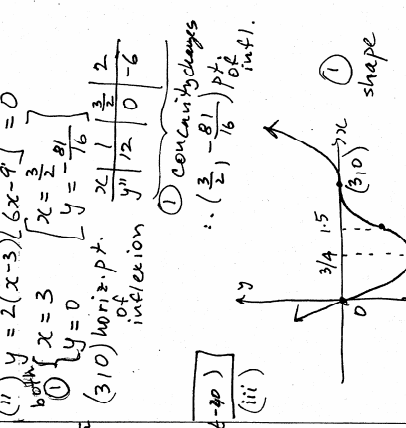 (ii) y'' = 2(x-3)[6x-9] = 0
both { x = 3 [ x = 3/2
① { y = 0 y = -81/16 ]
(3,0) horiz. pt.
of
inflexion
x | 1 | 3/2 | 2
y'' | 12 | 0 | -6
① concavity changes
∴ (3/2, -81/16) pt.
of
infl.
-20)
(iii)
① shape
y
x
0
3/4
1.5
(3,0)